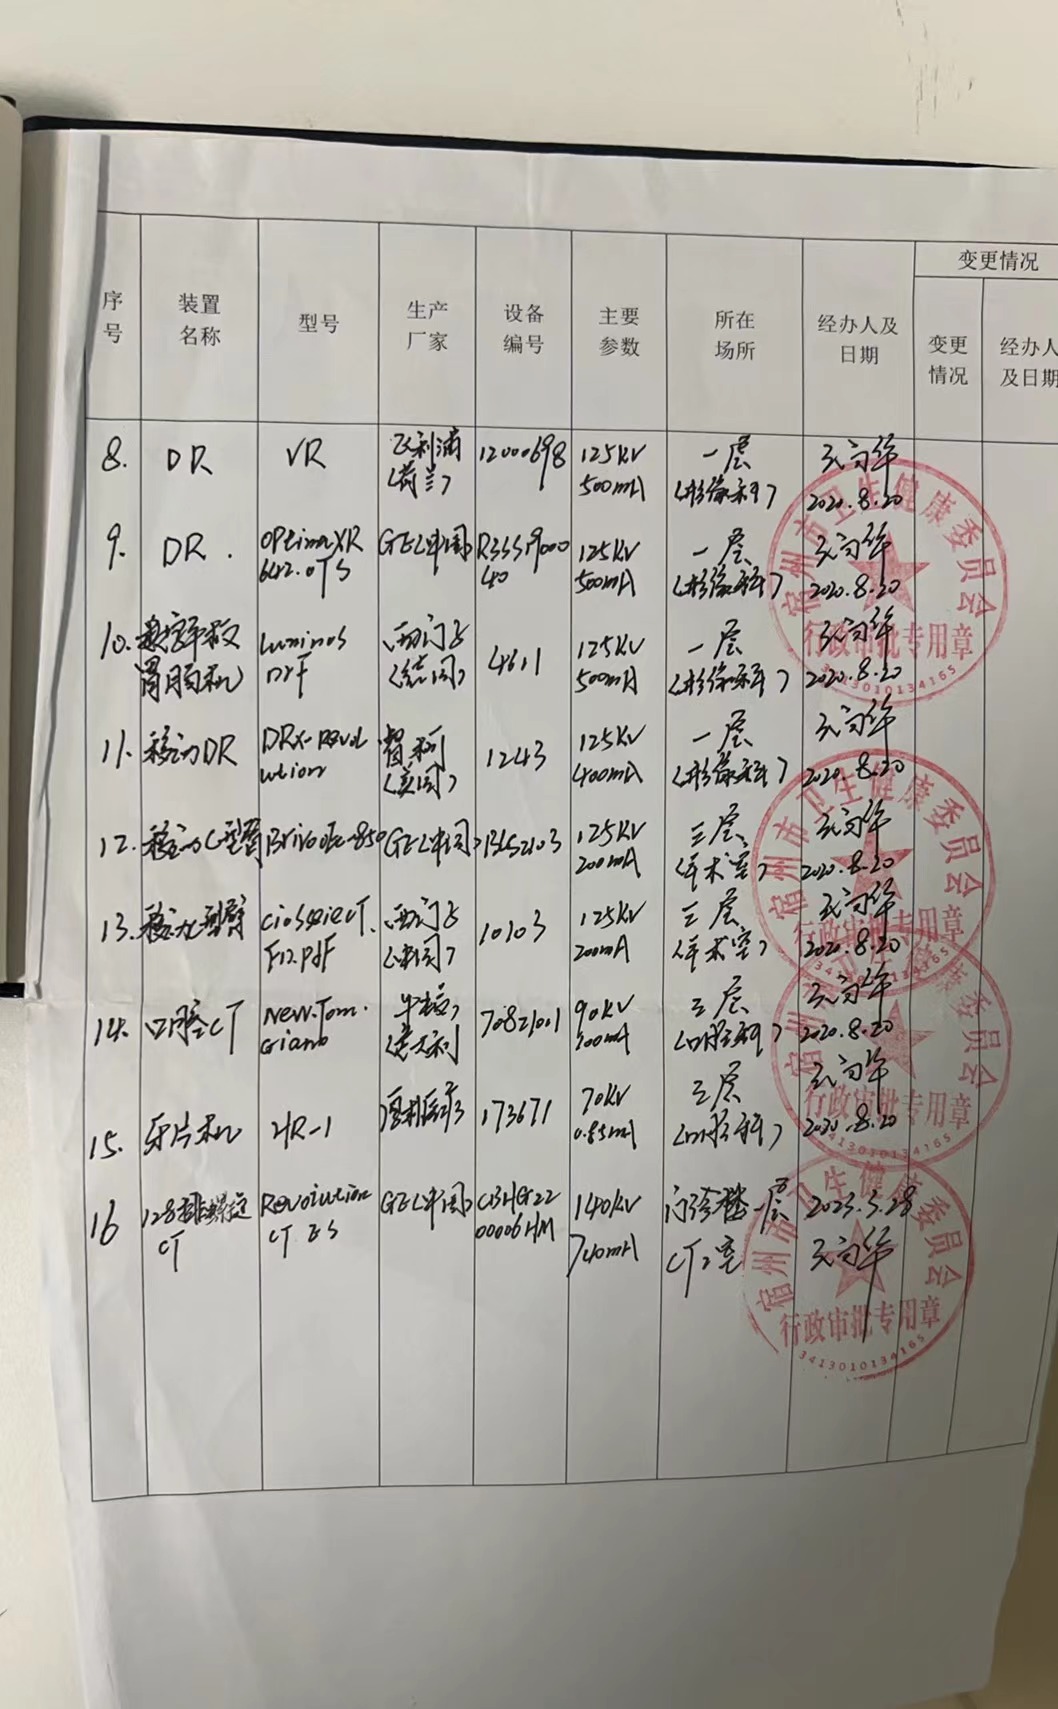 变更情况
序号
装置名称
型号
生产厂家
设备编号
主要参数
所在场所
经办人及日期
变更情况
经办人及日期
8. DR VR 飞利浦 12000698 125KV 一层
(荷兰) 500mA (影像科) 2020.8.20
9. DR. OPtima XR GE(中国) R3SS19000 125KV 一层
642.0TS 40 500mA (影像科) 2020.8.20
10. Luminos 西门子 4611 125KV 一层
胃肠机 DrF (德国) 500mA (影像科) 2020.8.20
11. 移动DR DRX-Revol 1243 125KV 一层
ution (美国) 400mA (影像科) 2020.8.20
12. 移动C型臂 Brivo Oec 850 GE(中国) B1S2103 125KV 三层
200mA (手术室) 2020.8.20
13. 移动C型臂 西门子 10103 125KV 三层
(中国) 200mA (手术室) 2020.8.20
14. 口腔CT NewTom. 90KV 二层
Giano (意大利) (口腔科) 2020.8.20
15. 牙片机 HR-1 173671 70KV 二层
(口腔科) 2020.8.20
16 128排螺旋 Revolution GE(中国) CBHG22 140KV 门诊楼一层 2023.3.28
CT CT ES 00006HM 740mA CT2室
宿州市卫生健康委员会
行政审批专用章
3413010134165
宿州市卫生健康委员会
行政审批专用章
3413010134165
宿州市卫生健康委员会
行政审批专用章
3413010134165
宿州市卫生健康委员会
行政审批专用章
3413010134165